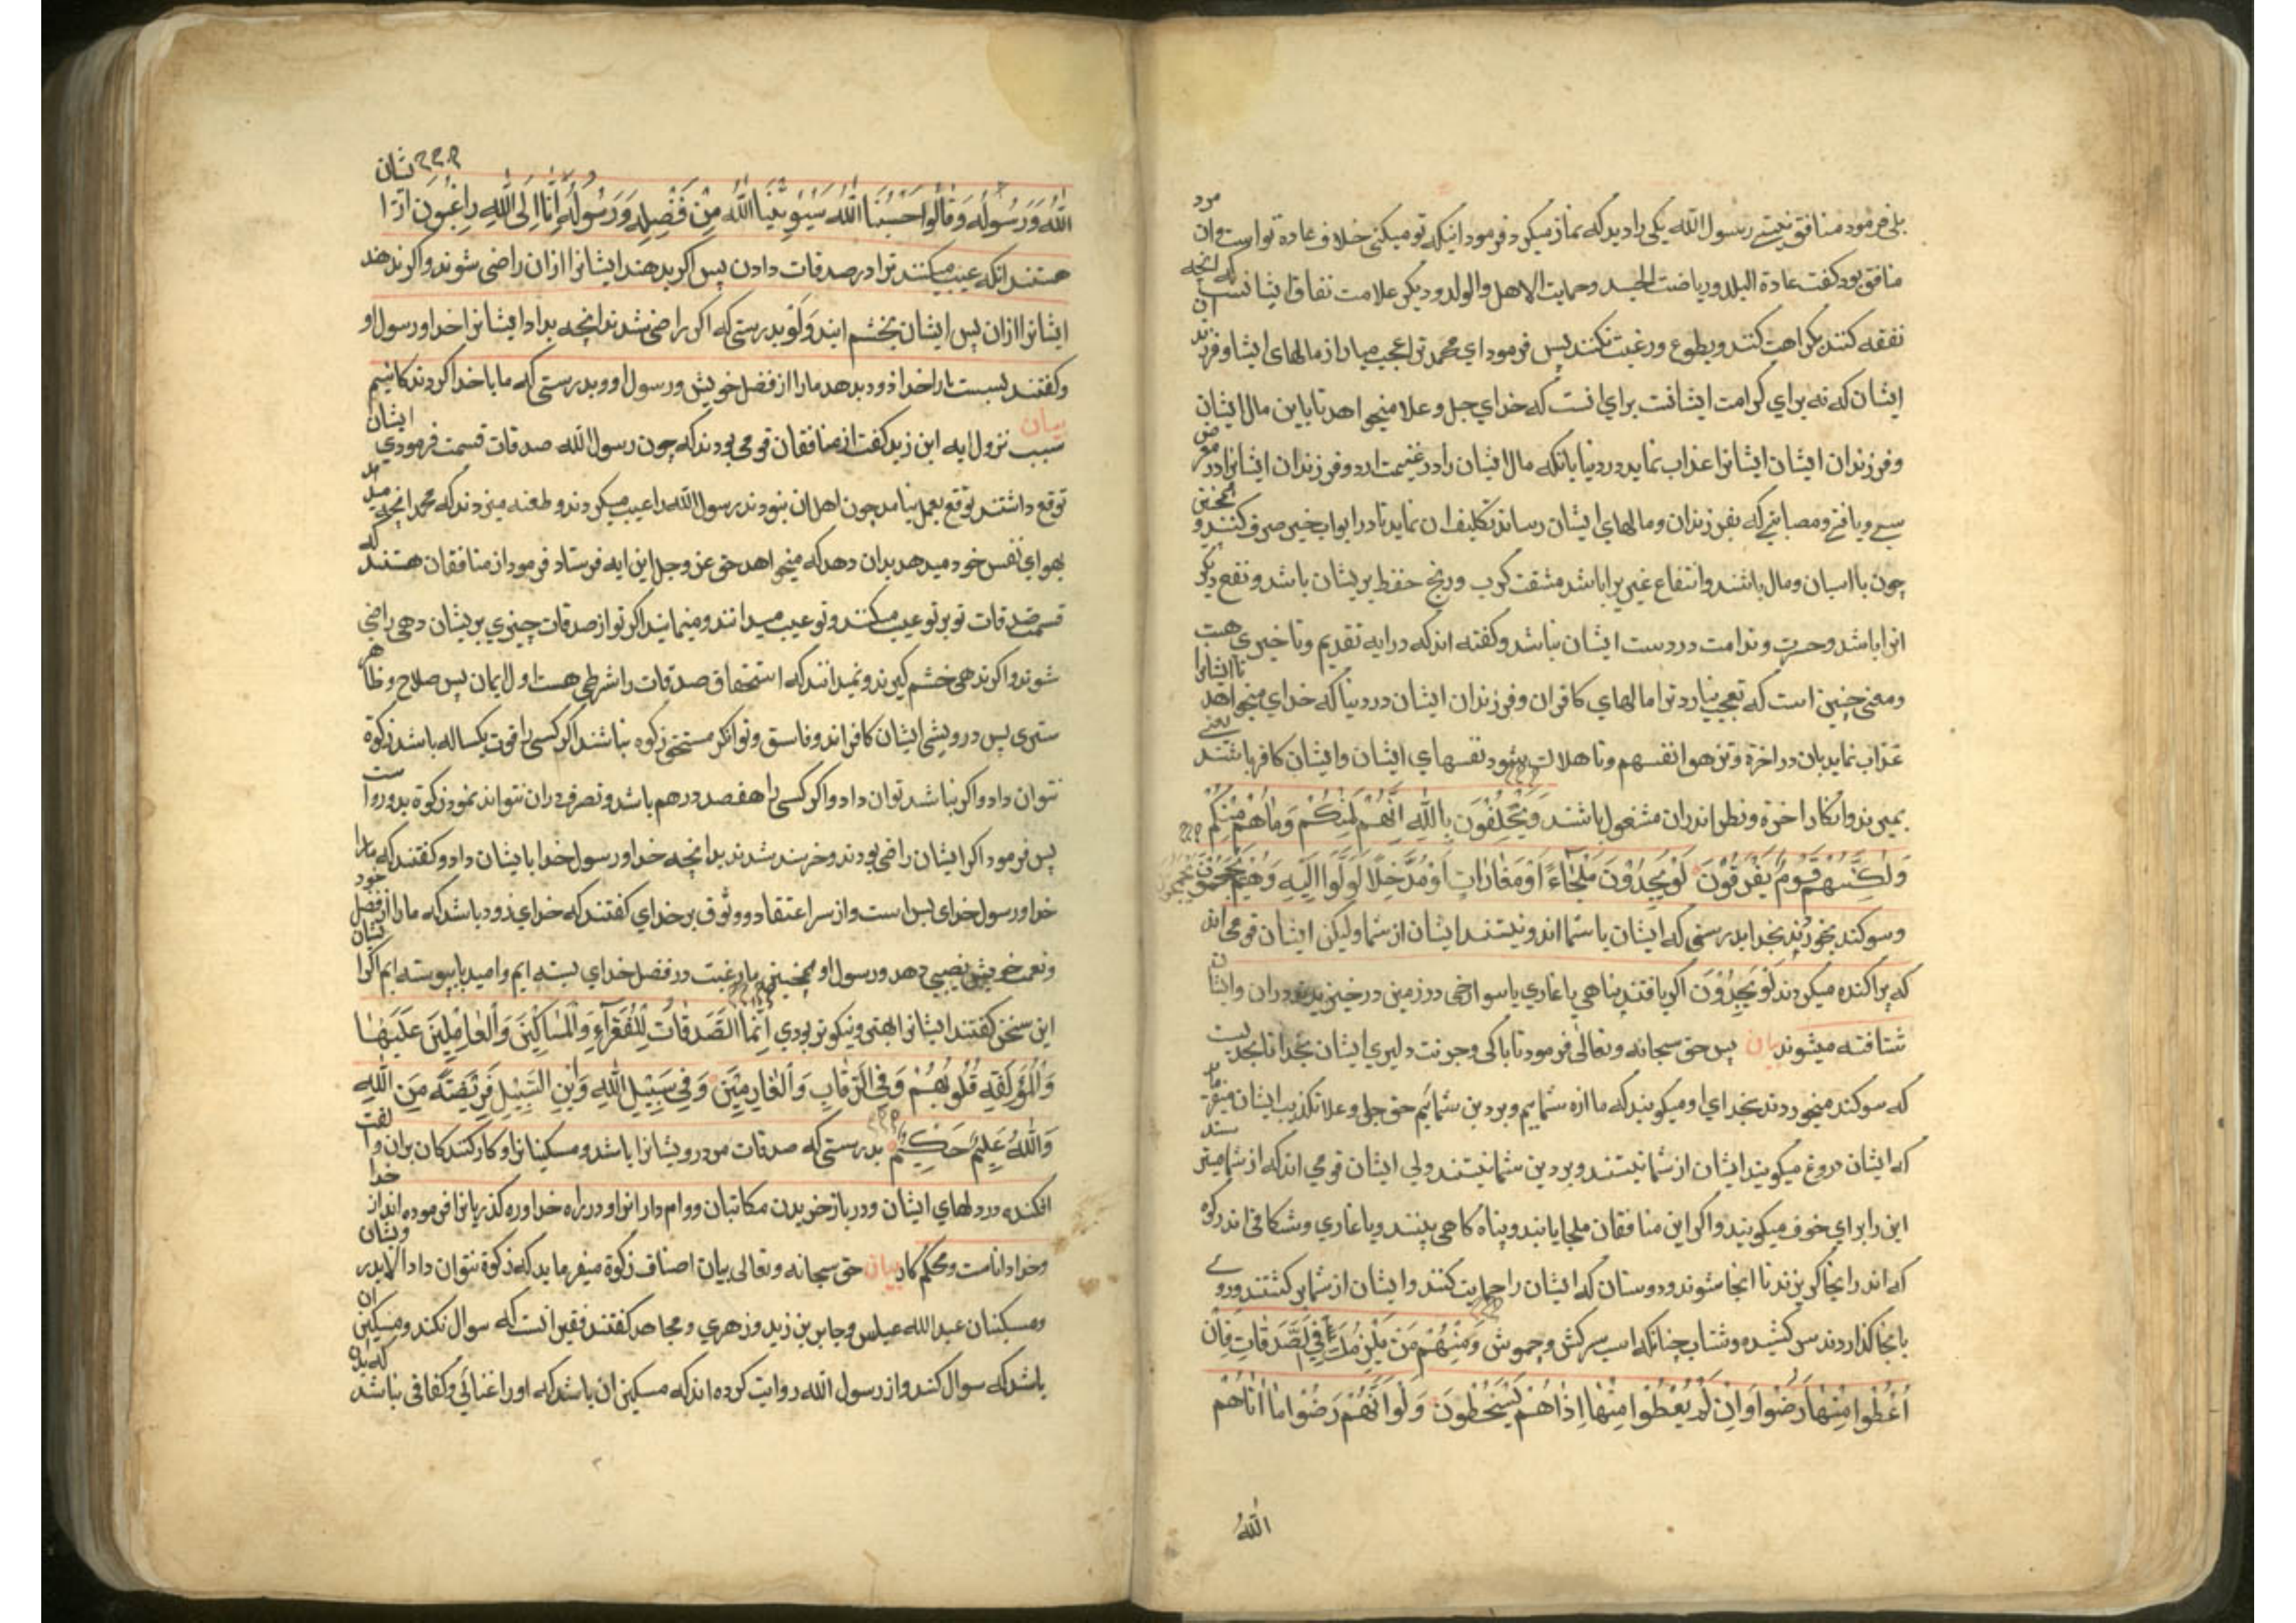 بلی فرمود منافق نیستے رسول الله یکی را دید که نماز میکرد فرمود اینکه تو میکنی خلاف عادة تو است و ان مرد
منافق بود کفت عادة البلد و ریاضت الجسد و حمایت الاهل و الولد و دیکر علامت نفاق ایشانست که انچه
نفقه کنند بکراهت کنند و بطوع و رغبت نکنند پس فرمود ای محمد ترا عجب میار از مالهای ایشا و فرزند ان
ایشان که نه برای کرامت ایشانست برای انست که خدای جل و علا میخواهد تا باین مال ایشان
و فرزندان ایشان ایشانرا عذاب نماید در دنیا بانکه مال ایشان را در غنیمت ارد و فرزندان ایشانرا در معرض
سبے و یافتے و مصایبے که بفرزندان و مالهای ایشان رساند تکلیف ان نماید تا در ابواب خیر صرف کنند و همچنین
چون با اسیان و مال باشند و انتفاع غیر یرا باشد مشقت کرب و رنج حفظ بریشان باشد و نفع دیکر
انرا باشد و حسرت و ندامت در دست ایشان نباشد و کفته اند که در ایه تقدیم و تاخیری هست
و معنی چنین است که تعجب نیارد ترا مالهای کافران و فرزندان ایشان در دنیا که خدای میخواهد تا ایشانرا
عذاب نماید بان در اخرة و تزهق انفسهم و تا هلاک شود نفسهای ایشان و ایشان کافر باشند یعنے
بمیرند و انکار اخرة و نظر اندران مشغول باشند وَيَحْلِفُوْنَ بِاللّٰهِ اِنَّهُمْ لَمِنْكُمْ وَمَاهُمْ مِنْكُمْ
وَلٰكِنَّهُمْ قَوْمٌ يَفْرَقُوْنَ لَوْيَجِدُوْنَ مَلْجَاءً اَوْمَغَارَاتٍ اَوْمُدَّخَلًا لَوَلَّوْا اِلَيْهِ وَهُمْ يَجْمَحُوْنَ
و سوکند بخورند بخدا بدرستی که ایشان با شما اند و نیستند ایشان از شما و لیکن ایشان قومی اند
که پراکنده میکردند لَوْ يَجِدُوْنَ اکر یافتند پناهی یا غاری یا سوراخی در زمین در خیزیدند در ان و ایشان
شتافته میشوند بیان پس حق سبحانه و تعالی فرمود نا باکی و جرئت دلیری ایشان بخدا تا بحدیست
که سوکند میخوردند بخدای او میکویند که ما از شماییم و بر دین شمائیم حق جل و علا تکذیب ایشان میفرماید
که ایشان دروغ میکویند ایشان از شما نیستند و بر دین شما نیستند ولی ایشان قومی اند که از شما میترسند
این را برای خوف میکویند و اکر این منافقان ملجا یابند و پناه کاهی بینند و یا غاری و شکافی اندر کوه
که اندرانجا کریزند تا انجا شوند و دوستان که ایشان را حمایت کنند و ایشان از شما برکشتند و روے
بانجا کذاردند سرکشیده و شتاب چنانکه اسب سرکش و چموش وَمِنْهُمْ مَنْ يَلْمِزُكَ فِي الصَّدَقَاتِ فَاِنْ
اُعْطُوا مِنْهَا رَضُوْا وَاِنْ لَمْ يُعْطَوْا مِنْهَا اِذَا هُمْ يَسْخَطُونَ وَلَوْ اَنَّهُمْ رَضُوْا مَا اٰتَاهُمْ
اللّٰهُ
اللّٰهُ وَرَسُوْلُهُ وَقَالُوا حَسْبُنَا اللّٰهُ سَيُؤْتِيْنَا اللّٰهُ مِنْ فَضْلِهِ وَرَسُوْلُهُ اِنَّا اِلَى اللّٰهِ رَاغِبُوْنَ از ایشان
هستند انکه عیب میکنند ترا در صدقات دادن پس اکر بدهند ایشانرا ازان راضی شوند و اکر ندهند
ایشانرا ازان پس ایشان بخشم ایند وَلَوْ بدرستی که اکر راضی شدند انچه بداد ایشانرا خدا و رسول او
و کفتند بسست مارا خدا زود بدهد مارا از فضل خویش و رسول او و بدرستی که ما با خدا کردند کانیم
بیان
سبب نزول ایه ابن زید کفت از منافقان قومی بودند که چون رسول الله صدقات قسمت فرمودی ایشان
توقع داشتند توقع بعمل نیامد چون اهل ان نبودند رسول الله را عیب میکردند و طعنه میزدند که محمد انچه میدهد
بهوای نفس خود میدهد بدان دهد که میخواهد حق عز و جل این ایه فرستاد فرمود از منافقان هستند که
قسمت صدقات تو بر تو عیب میکنند و تو عیب میدانند و مینمایند اکر تو از صدقات چیزی بریشان دهی راضی
شوند و اکر ندهی خشم کیرند و نمیدانند که استحقاق صدقات را شرطی هست اول ایمان پس صلاح و ظاهر
ستری پس درویشی ایشان کافر اند و فاسق و توانکر مستحق زکوه نباشند اکر کسی را قوت یکساله باشد زکوة
نتوان داد و اکر نباشد توان داد و اکر کسی را هفصد درهم باشد و تصرف دران نتواند نمود زکوة بدو رواست
پس فرمود اکر ایشان راضی بودند و خرسند شدند بدانچه خدا و رسول خدا بایشان داد و کفتند که مارا
خدا و رسول خدای بس است و از سر اعتقاد و وثوق بر خدای کفتند که خدای زود باشد که مارا از فضل خود
و نعمت خویش نصیبی دهد و رسول او همچنین ما رغبت در فضل خدای بسته ایم و امید با پیوسته ایم اکر ایشان
این سخن کفتند ایشانرا بهتر و نیکوتر بودی اِنَّمَا الصَّدَقَاتُ لِلْفُقَرَآءِ وَالْمَسَاكِيْنَ وَالْعَامِلِيْنَ عَلَيْهَا
وَالْمُؤَلَّفَةِ قُلُوْبُهُمْ وَفِي الرِّقَابِ وَالْغَارِمِيْنَ وَفِي سَبِيْلِ اللّٰهِ وَابْنِ السَّبِيْلِ فَرِيْضَةً مِنَ اللّٰهِ
وَاللّٰهُ عَلِيْمٌ حَكِيْمٌ بدرستی که صدقات مر درویشانرا باشد و مسکینانرا و کار کنندکان بران و الفت
افکنده در دلهای ایشان و در باز خریدن مکاتبان و وام دارانرا و در راه خدا و ره کذریانرا فرموده اند از خدا
و خدا داناست و محکم کار بیان حق سبحانه و تعالی بیان اصناف زکوة میفرماید که زکوة نتوان داد الا بدرویشان
و مسکینان عبدالله عباس و جابر بن زید و زهری و مجاهد کفتند فقیر انست که سوال نکند و مسکین ان
باشد که سوال کند و از رسول الله روایت کرده اند که مسکین ان باشد که اورا غنائی و کفافی نباشد که بدان